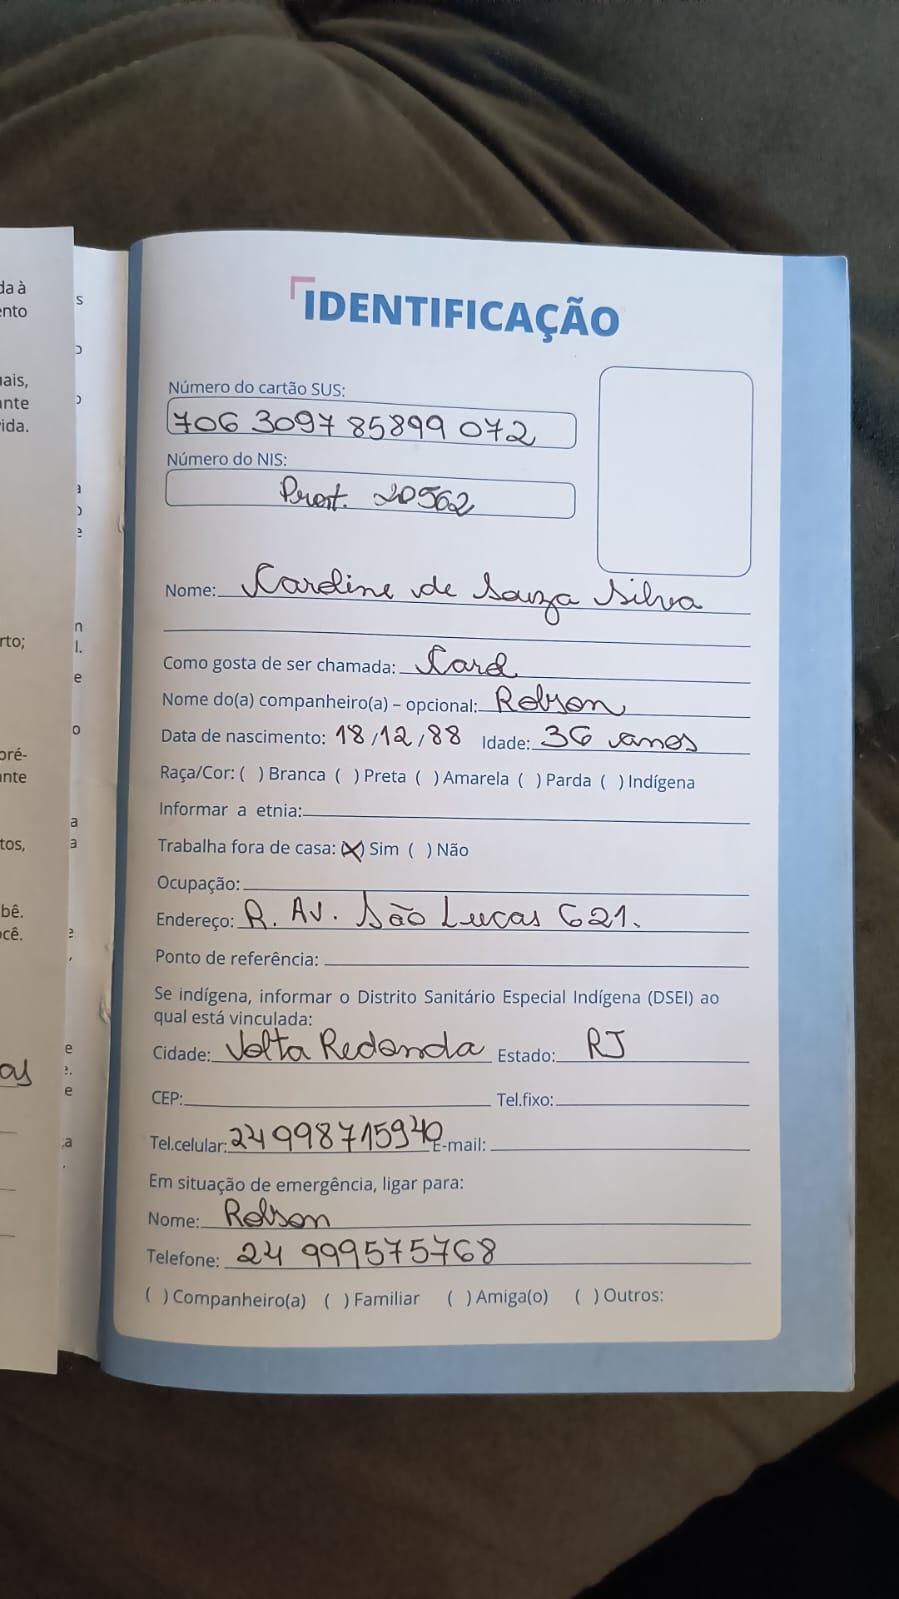 IDENTIFICAÇÃO
Número do cartão SUS:
706 3097 85899 072
Número do NIS:
Pront. 20562
Nome: Caroline de Souza Silva
Como gosta de ser chamada: Carol
Nome do(a) companheiro(a) – opcional: Robson
Data de nascimento: 18/12/88 Idade: 36 anos
Raça/Cor: ( ) Branca ( ) Preta ( ) Amarela ( ) Parda ( ) Indígena
Informar a etnia:
Trabalha fora de casa: (X) Sim ( ) Não
Ocupação:
Endereço: R. Av. São Lucas 621.
Ponto de referência:
Se indígena, informar o Distrito Sanitário Especial Indígena (DSEI) ao
qual está vinculada:
Cidade: Volta Redonda Estado: RJ
CEP: Tel.fixo:
Tel.celular: 24 998715940 E-mail:
Em situação de emergência, ligar para:
Nome: Robson
Telefone: 24 999575768
( ) Companheiro(a) ( ) Familiar ( ) Amiga(o) ( ) Outros: